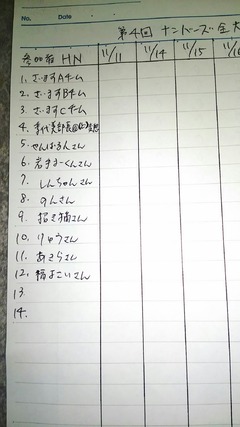 No.
Date
第4回 ナンバーズ全大
参加者 HN 11/11 11/14 11/15 11/1
1. ざますAチーム
2. ざますBチーム
3. ざますCチーム
4.
5. せんぱるんさん
6. 岩すきーくんさん
7. しんちゃんさん
8. のんさん
9. 招き猫さん
10. りゅうさん
11. あきらさん
12. 福よこいさん
13.
14.